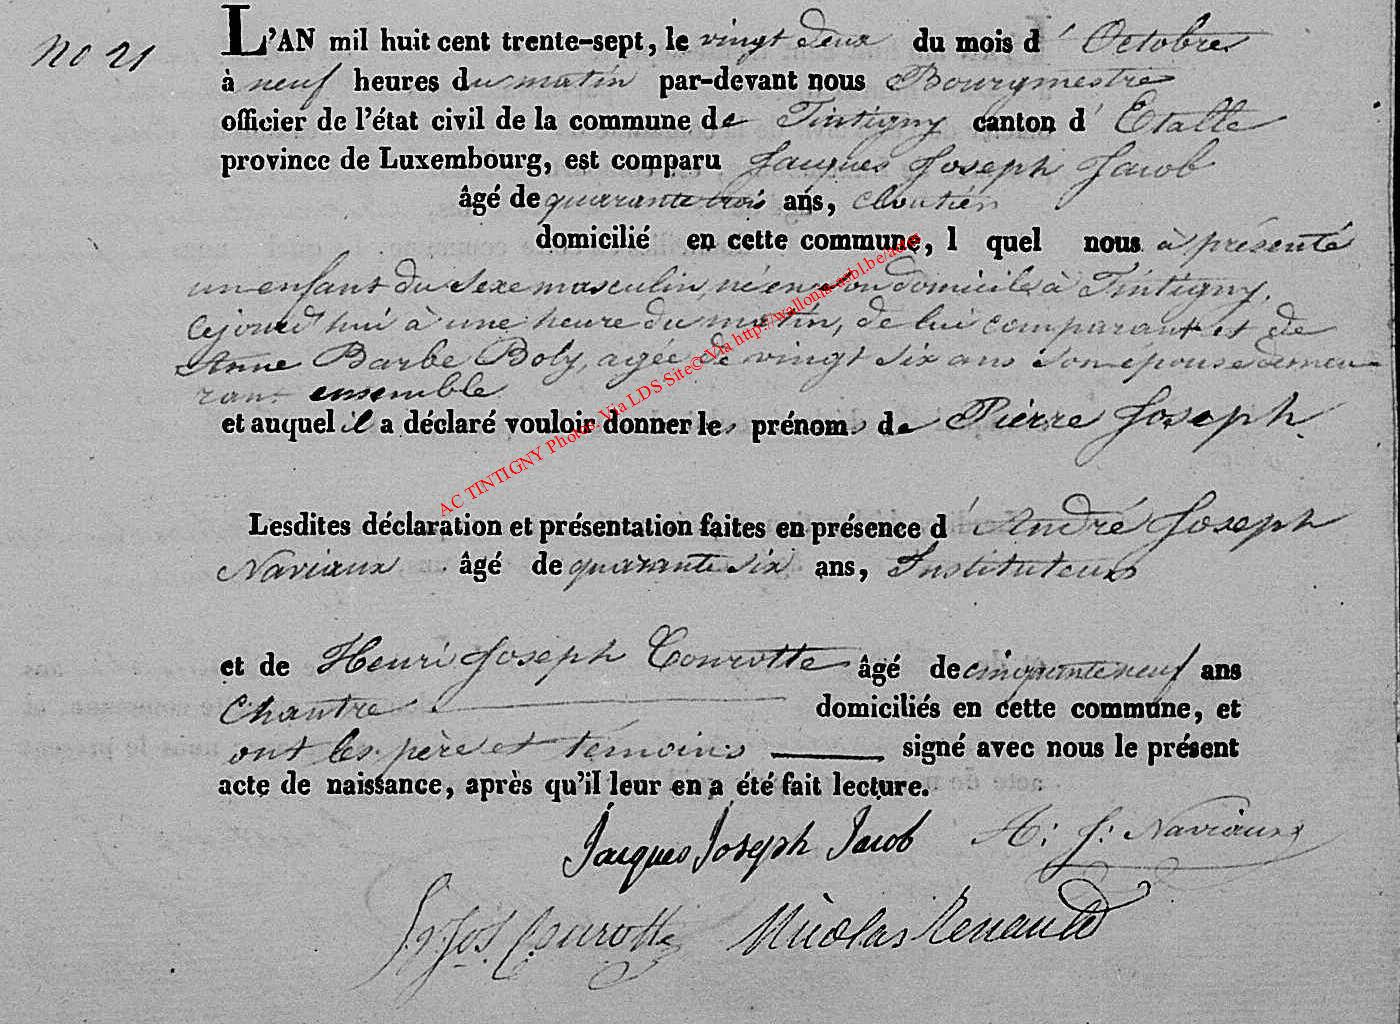 No 21
L'AN mil huit cent trente-sept, le vingt deux du mois d' Octobre
à neuf heures du matin par-devant nous Bourgmestre
officier de l'état civil de la commune de Tintigny canton d' Etalle
province de Luxembourg, est comparu Jacques Joseph Jacob
âgé de quarante trois ans, cloutier
domicilié en cette commune, l quel nous à présenté
un enfant du sexe masculin, né en son domicile à Tintigny,
cejourd'hui à une heure du matin, de lui comparant et de
Anne Barbe Boly, agée de vingt six ans son epouse demeu-
rant ensemble
et auquel il a déclaré vouloir donner les prénoms de Pierre Joseph.
Lesdites déclaration et présentation faites en présence d' André Joseph
Naviaux âgé de quarante six ans, Instituteur
et de Henri Joseph Courotte âgé de cinquante neuf ans
Chantre domiciliés en cette commune, et
ont les père et témoins signé avec nous le présent
acte de naissance, après qu'il leur en a été fait lecture.
Jacques Joseph Jacob A: J: Naviaux
Jos Courotte Nicolas Renauld
AC TINTIGNY Photos. Via LDS Site© Via http://wallonia-asbl.be/actes